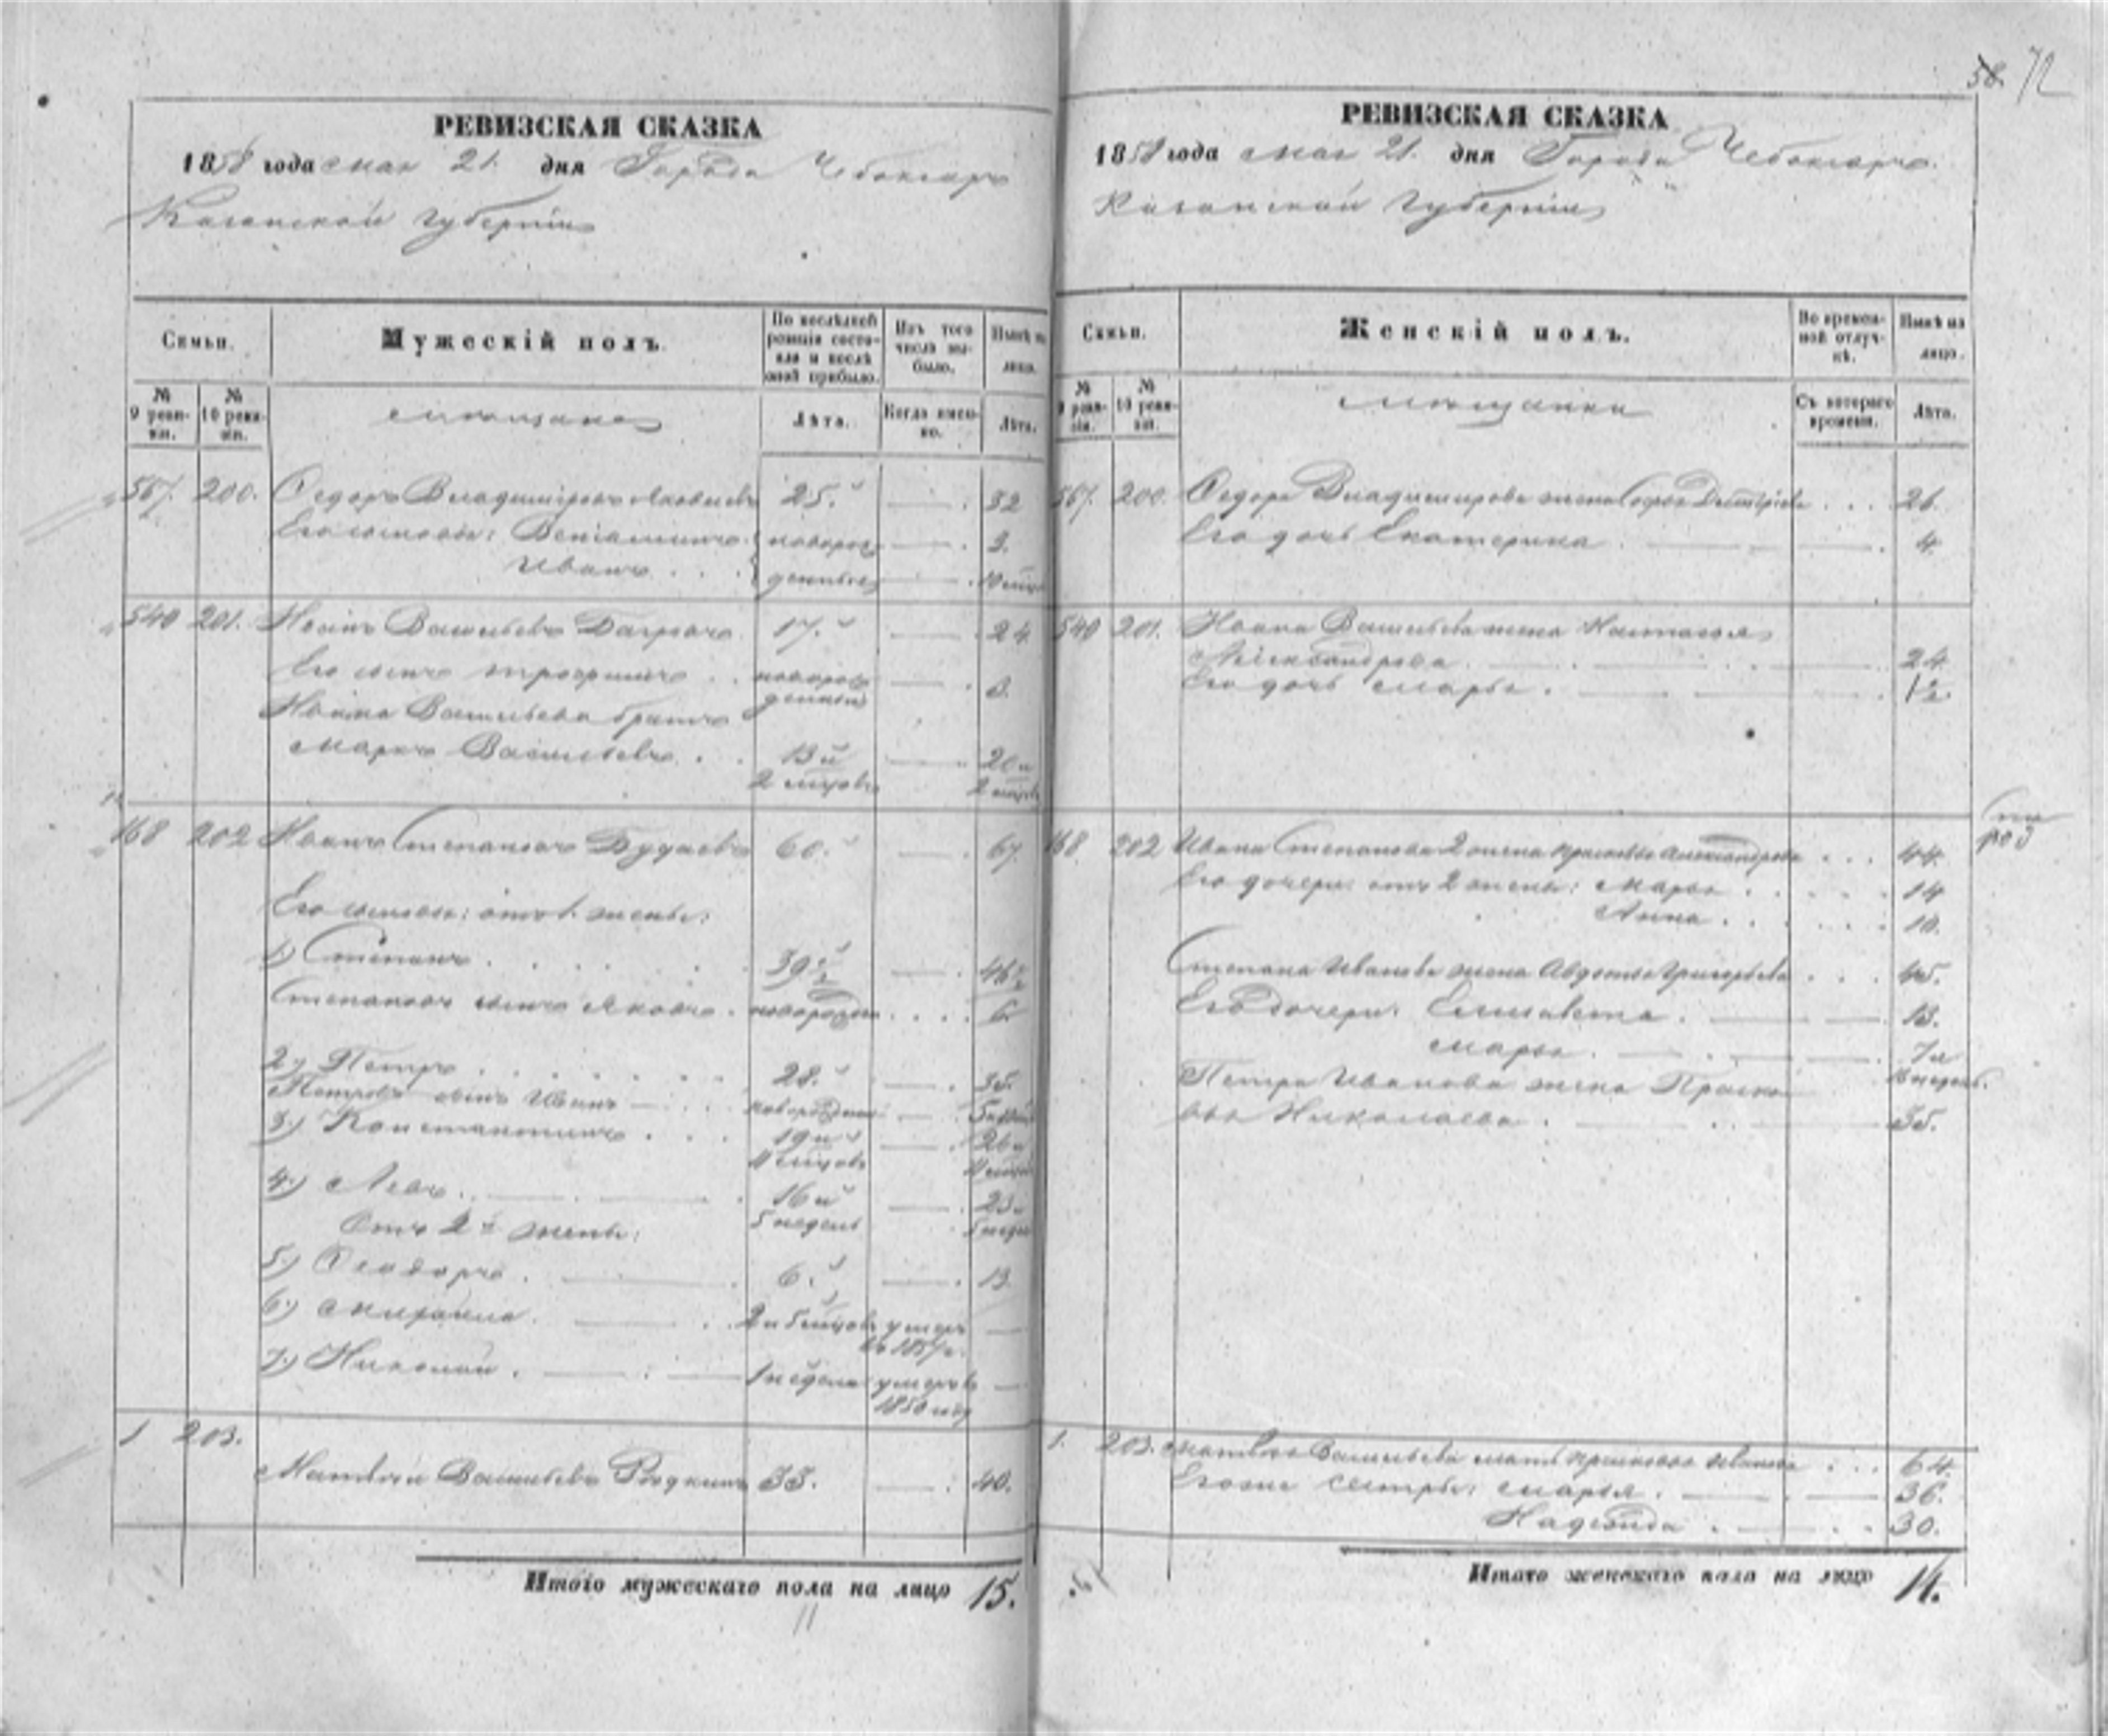 58. 72
РЕВИЗСКАЯ СКАЗКА
1858 года мая 21. дня Города Чебоксаръ
Казанской губерніи
Семьи.
Мужескій полъ
По послѣдней ревизіи состояло и послѣ оной прибыло.
Изъ того числа выбыло.
Нынѣ на лицо.
№ 9 ревизіи.
№ 10 ревизіи.
мѣщане
Лѣта.
Когда именно.
Лѣта.
567. 200. Федоръ Владимировъ Яковлевъ 25. 32
Его сыновья: Веніаминъ новорож 3.
Иванъ денные
540 201. Иванъ Васильевъ 17. 24
Его сынъ Трофимъ новорож 3.
денный
Ивана Васильева братъ
Маркъ Васильевъ 13 и 20 и
2 мѣсяцовъ 2
168 202 Иванъ Степановъ 60. 67
Его сыновья: отъ 1. жены:
1.) Степанъ 39 ½ 46 ½
Степановъ сынъ Яковъ новорожден 6
2.) Петръ 28. 35.
Петровъ сынъ Иванъ новорожденный
3.) Константинъ 19 и 26 и
11 мѣсяцовъ 11
4.) Левъ 16 и 23 и
5 недель 5 недель
Отъ 2й жены:
5.) Феодоръ 6. 13.
6.) Михаила 2 и 5 мѣсяцовъ умеръ
въ 1857 г.
7.) Николай 1 неделя умеръ въ
1850 году
1 203.
Матвей Васильевъ 33. 40.
Итого мужескаго пола на лицо 15.
РЕВИЗСКАЯ СКАЗКА
1858 года мая 21. дня Города Чебоксаръ.
Казанской губерніи
Семьи.
Женскій полъ.
Во временной отлучкѣ.
Нынѣ на лицо.
№ 9 ревизіи.
№ 10 ревизіи.
мѣщанки
Съ котораго времени.
Лѣта.
567. 200. Федора Владимирова жена Софья Дмитріева 26.
Его дочь Екатерина 4.
540 201. Ивана Васильева жена Настасья
Александрова 24.
Его дочь Марья 1½.
168. 202 Ивана Степанова 2 жена Прасковья Александрова 44.
Его дочери: отъ 2 жены: Марья 14
Анна 10.
Степана Иванова жена Авдотья Григорьева 45.
Его дочери: Елизавета 13.
Марья 7 и
недель.
Петра Иванова жена Праско
вья Николаева 35.
1. 203. Матвея Васильева мать Прасковья Иванова 64.
Его же сестры: Марья 36.
Надежда 30.
Итого женскаго пола на лицо 14.